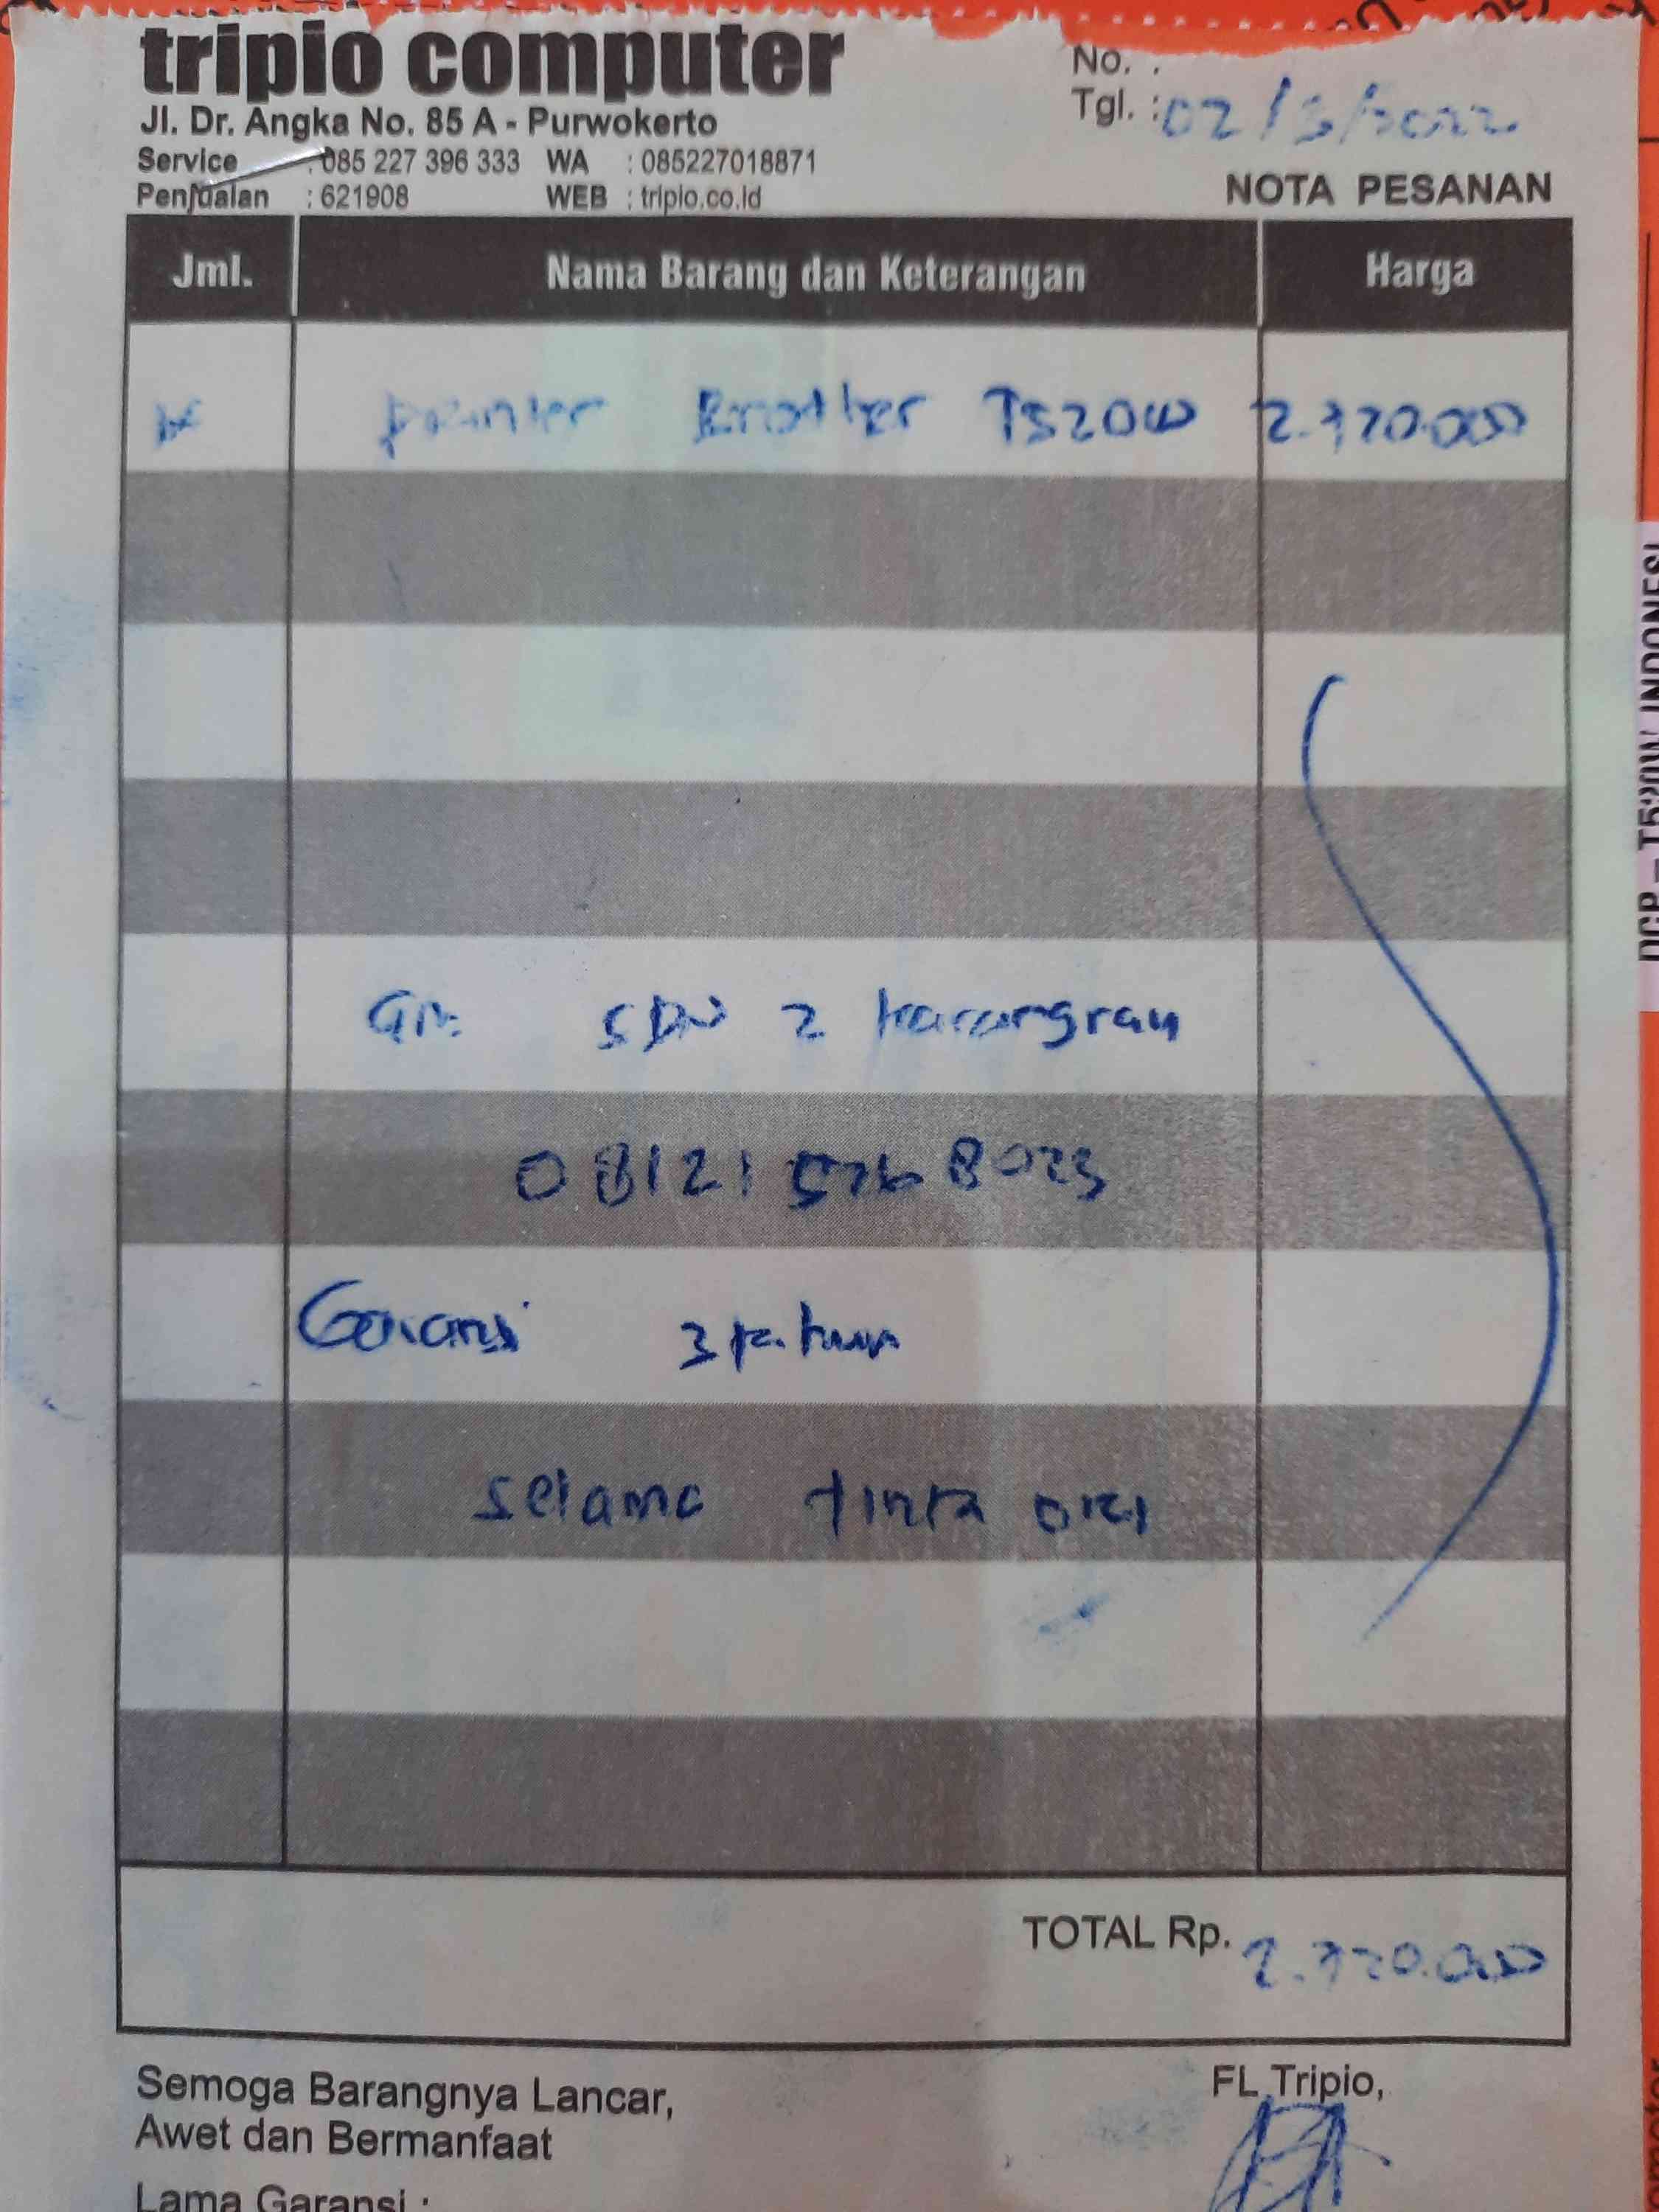 tripio computer
Jl. Dr. Angka No. 85 A - Purwokerto
Service : 085 227 396 333 WA : 085227018871
Penjualan : 621908 WEB : tripio.co.id
No. :
Tgl. : 02/3/2022
NOTA PESANAN
Jml. Nama Barang dan Keterangan Harga
printer Brother T520W 2.720.000
SDN 2
Garansi 3 tahun
selama tinta ori
TOTAL Rp. 2.720.000
Semoga Barangnya Lancar,
Awet dan Bermanfaat
FL Tripio,
Lama Garansi :
DCP - T520W INDONESI